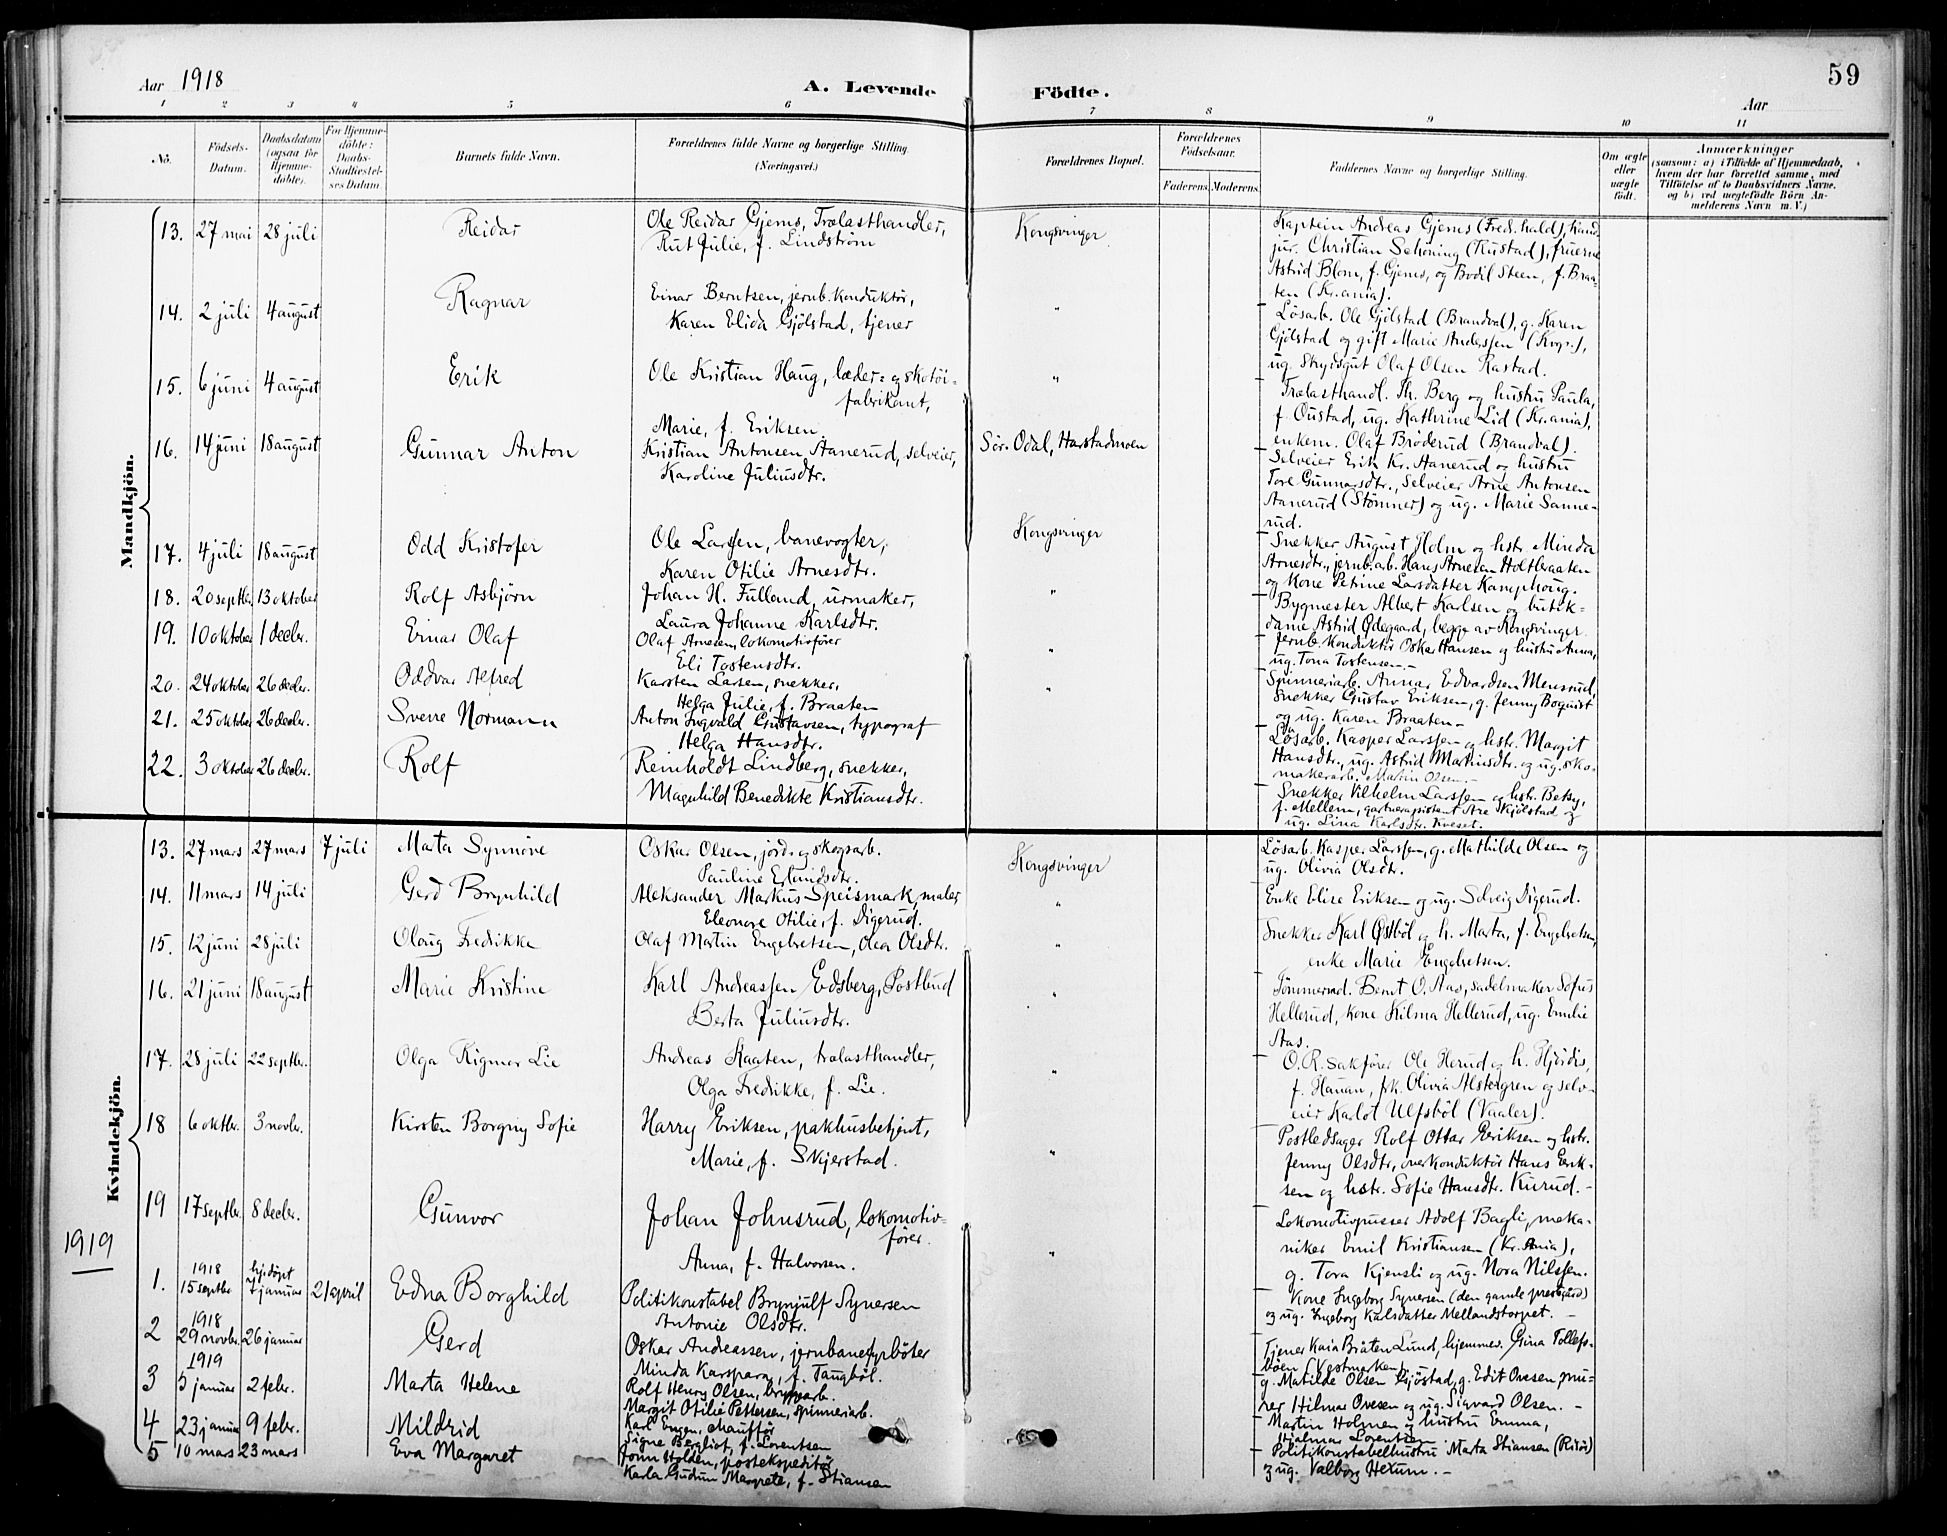 59
Aar 1918
A. Levende Födte.
Aar
1 2 3 4 5 6 7 8 9 10 11
No.
Födsels-
Datum.
Daabsdatum
(ogsaa for
Hjemme-
döbte).
For Hjemme-
döbte:
Daabs-
Stadfæstel-
ses Datum.
Barnets fulde Navn.
Forældrenes fulde Navne og borgerlige Stilling
(Næringsvei.)
Forældrenes Bopæl.
Forældrenes
Födselsaar.
Faderens. Moderens.
Faddernes Navne og borgerlige Stilling.
Om ægte
eller
uægte
födt.
Anmærkninger
(saasom: a) i Tilfælde af Hjemmedaab,
hvem der har forrettet samme, med
Tilföielse af to Daabsvidners Navne,
og b) ved uægtefödte Börn An-
melderens Navn m. V.)
Mandkjön.
13. 27 mai 28 juli Reidar
Ole Reidar Gjems, Trælasthandler,
Rut Julie, f. Lindström
Kongsvinger
Kaptein Andreas Gjems (Fred.hald), kand.
jur. Christian Schöning (Rustad), fruerne
Astrid Blom, f. Gjems, og Bodil Steen, f. Braa-
ten (Kr.ania).
14. 2 juli 4 august Ragnar
Einar Berntsen, jernb. konduktör,
Karen Elida Gjölstad, tjener
"
Lösarb. Ole Gjölstad (Brandval), g. Karen
Gjölstad og gift Marie Anderssen (Kvgr.),
ug. Skydsgut Olaf Olsen Rastad.
15. 6 juni 4 august Erik
Ole Kristian Haug, læder= og skotöi-
fabrikant,
Marie, f. Eriksen
"
Trælasthandl. Th. Berg og hustru Paula,
f. Oustad, ug. Kathrine Lid (Kr.ania),
enkem. Olaf Bröderud (Brandval).
16. 14 juni 18 august Gunnar Anton
Kristian Antonsen Aanerud, selveier,
Karoline Juliusdtr.
Sör-Odal, Harstadmoen
Selveier Erik Kr. Aanerud og hustru
Tore Gunnarsdtr., selveier Arne Antonsen
Aanerud (Strömner) og ug. Marie Sanne-
rud.
17. 4 juli 18 august Odd Kristofer
Ole Larssen, banevogter,
Karen Otilie Arnesdtr.
Kongsvinger
Snekker August Holm og hstr. Minda
Arnesdtr., jernb.arb. Hans Arnesen Holtbraaten
og kone Petrine Larsdatter Kamphoug.
18. 20 septbr. 13 oktober Rolf Asbjörn
Johan H. Fulland, urmaker,
Laura Johanne Karlsdtr.
"
Bygmester Albert Karlsen og butik-
dame Astrid Ødegaard, begge av Kongsvinger
19. 10 oktober 1 decbr. Einar Olaf
Olaf Arnesen, lokomotivförer
Eli Tostensdtr.
"
Jernb. Konduktör Oskar Hansen og hustru Anna,
ug. Tona Tostensen.-
20. 24 oktober 26 decbr. Oddvar Alfred
Karsten Larsen, snekker,
Helga Julie, f. Braaten
"
Spinneriarb. Annar Edvardsen Mensrud,
Snekker Gustav Eriksen, g. Jenny Boquist
og ug. Karen Braaten.-
21. 25 oktober 26 decbr. Sverre Normann
Anton Ingvald Gustavsen, typograf
Helga Hansdtr.
Lösarb. Kasper Larssen og hstr. Margit
Hansdtr., ug. Astrid Martinsdtr. og ug. sko-
makerarb. Martin Olsen.-
22. 3 oktober 26 decbr. Rolf
Reinholdt Lindberg, snekker,
Magnhild Benedikte Kristiansdtr.
Snekker Vilhelm Larssen og hstr. Betsy,
f. Mellem, gartnerassistent Are Skjölstad og
ug. Lina Karlsdtr. Kveset.
Kvindekjön.
13. 27 mars 27 mars 7 juli Marta Synnöve
Oskar Olsen, jord= og skogsarb.
Pauline Erlandsdtr.
Kongsvinger
Lösarb. Kasper Larssen, g. Mathilde Olsen og
ug. Olivia Olsdtr.
14. 11 mars 14 juli Gerd Brynhild
Aleksander Markus Speismark, maler
Eleonore Otilie, f. Digerud.
"
Enke Elise Eriksen og ug. Solveig Digerud.
15. 12 juni 28 juli Olaug Fredikke
Olaf Martin Engebretsen, Olea Olsdtr.
"
Snekker Karl Østböl og h. Marta, f. Engebretsen,
enke Marie Engebretsen.
16. 21 juni 18 august Marie Kristine
Karl Andreassen Edsberg, Postbud
Berta Juliusdtr.
"
Tömmermd. Bernt O. Aas, sadelmaker Sofus
Hellerud, kone Hilma Hellerud, ug. Emilie
Aas.
17. 28 juli 22 septbr. Olga Rigmor Lie
Andreas Kaaten, trælasthandler,
Olga Fredikke, f. Lie.
"
O.R. Sakförer Ole Herud og h. Hjördis,
f. Hanan, frk. Olivia Alstergren og selv-
eier Karlot Ulfsböl (Vaaler).
18 6 oktbr. 3 novbr. Kirsten Borgny Sofie
Harry Eriksen, pakhusbetjent,
Marie, f. Skjerstad.
"
Postledsager Rolf Ottar Eriksen og hstr.
Jenny Olsdtr, overkonduktör Hans Erik-
sen og hstr. Sofie Hansdtr. Kurud.-
19 17 septbr. 8 decbr. Gunvor
Johan Johnsrud, lokomotiv-
förer.
Anna, f. Halvorsen.
"
Lokomotivpusser Adolf Bagli, meka-
niker Emil Kristiansen (Kr.ania),
g. Tora Kjensli og ug. Nora Nilssen.
1919
1. 1918 15 septbr hj.döpt 7 januar 21 april Edna Borghild
Politikonstabel Brynjulf Synersen
Antonie Olsdtr.
Kone Ingeborg Synersen (den gamle prestgård)
og ug. Ingeborg Karlsdatter Mellandstorpet. -
2 1918 29 novbr. 26 januar Gerd
Oskar Andreassen, jernbanefyrböter
Minda Karspara, f. Taugböl.
Tjener Kaia Bråten Lund, hjemmev. Gina Tollefs-
böen (Vestmarken)
3 1919 5 januar 2 febr. Marta Helene
Rolf Henry Olsen, bryggearb.
Margit Otilie Pettersen, spinneriarb.
g. Matilde Olsen Gjöstad, g. Edit Ovesen, pus-
ser Hilmar Ovesen og ug. Sigvard Olsen. -
4 23 januar 9 febr. Mildrid
Karl Engen, chaufför
Signe Bergliot, f. Lorentsen
Martin Holmen og hustru Emma,
Hjalmar Lorentsen
5 10 mars 23 mars Eva Margaret
John Holden, postekspeditör
Karla Gudrun Margrete, f. Stiansen
Politikonstabelhustru Marta Stiansen (Risö)
og ug. Valborg Hexum. -